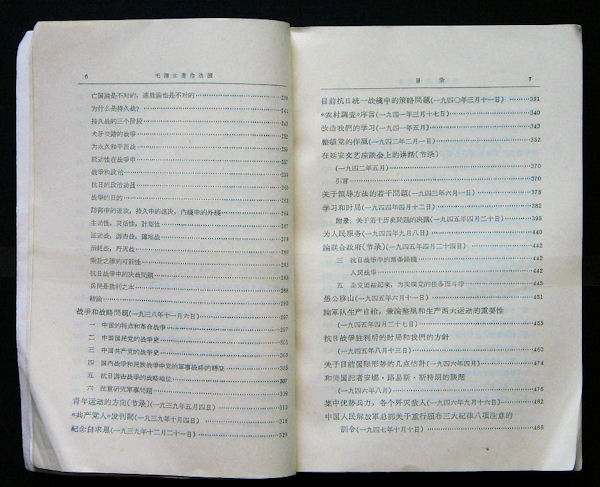 6 毛泽东著作选读
亡国論是不对的，速胜論也是不对的 239
为什么是持久战？
持久战的三个阶段
犬牙交錯的战爭
为永久和平而战
能动性在战爭中
战爭和政治
抗日的政治动員
战爭的目的
防御中的进攻，持久中的速决，內綫中的外綫
主动性，灵活性，計划性
运动战，游击战，陣地战
消耗战，歼灭战
乘敌之隙的可能性
抗日战爭中的决战問題
兵民是胜利之本
結論
战爭和战略問題(一九三八年十一月六日)
一 中国的特点和革命战爭
二 中国国民党的战爭史
三 中国共产党的战爭史
四 国內战爭和民族战爭中党的軍事战略的轉变
五 抗日游击战爭的战略地位 307
六 注意研究軍事問題
青年运动的方向(节录)(一九三九年五月四日)
《共产党人》发刊詞(一九三九年十月四日) 316
紀念白求恩(一九三九年十二月二十一日) 329
目录 7
目前抗日統一战綫中的策略問題(一九四〇年三月十一日) 331
《农村調查》序言(一九四一年三月十七日) 340
改造我們的学习(一九四一年五月) 343
整頓党的作風(一九四二年二月一日) 352
在延安文艺座談会上的讲話(节录)
(一九四二年五月) 370
引言 370
关于領导方法的若干問題(一九四三年六月一日) 378
学习和时局(一九四四年四月十二日) 385
附录：关于若干历史問題的决議(一九四五年四月二十日) 395
为人民服务(一九四四年九月八日) 440
論联合政府(节录)(一九四五年四月二十四日) 442
三 抗日战爭中的两条路綫
人民战爭 442
五 全党团結起来，为实現党的任务而斗爭 445
愚公移山(一九四五年六月十一日) 452
論軍队生产自給，兼論整風和生产两大运动的重要性
(一九四五年四月二十七日)
抗日战爭胜利后的时局和我們的方針
(一九四五年八月十三日)
关于目前国际形势的几点估計(一九四六年四月) 474
和美国記者安娜·路易斯·斯特朗的談話
(一九四六年八月)
集中优势兵力，各个歼灭敌人(一九四六年九月十六日)
中国人民解放軍总部关于重行頒布三大紀律八項注意的
訓令(一九四七年十月十日) 486